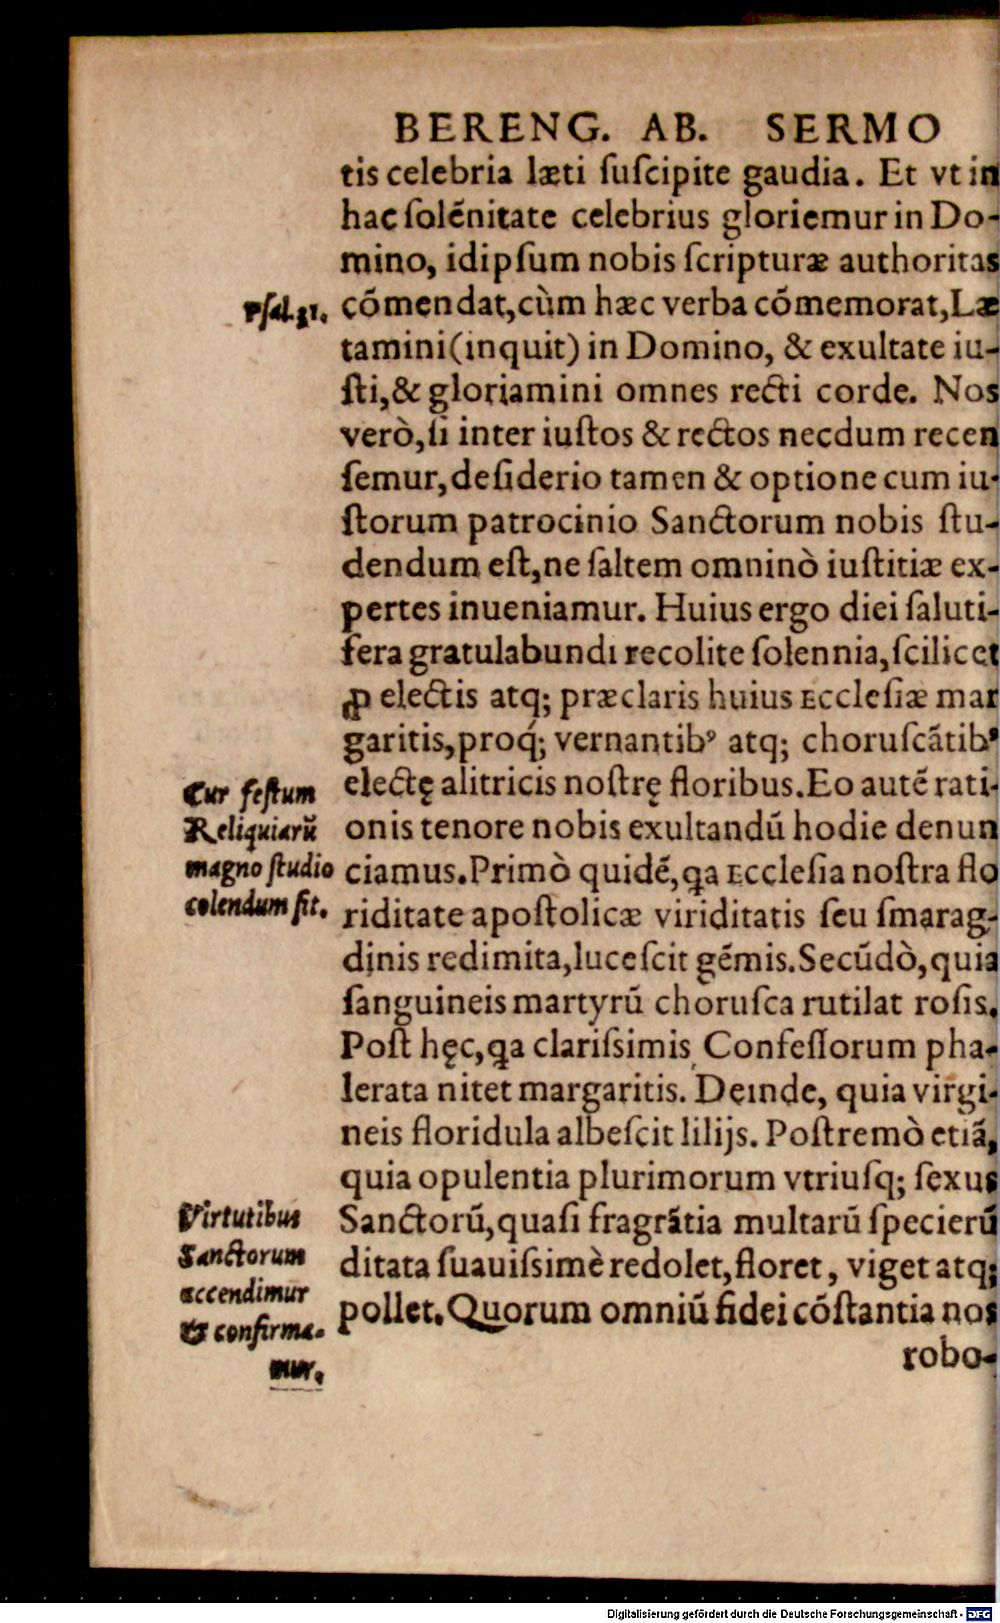 BERENG. AB. SERMO
tis celebria læti ſuſcipite gaudia. Et vt in
hac ſolẽnitate celebrius gloriemur in Do-
mino, idipſum nobis ſcripturæ authoritas
Pſal.31.
cõmendat,cùm hæc verba cõmemorat,Læ
tamini(inquit) in Domino, & exultate iu-
ſti,& gloriamini omnes recti corde. Nos
verò,ſi inter iuſtos & rectos necdum recen
ſemur,deſiderio tamen & optione cum iu-
ſtorum patrocinio Sanctorum nobis ſtu-
dendum eſt,ne ſaltem omninò iuſtitiæ ex-
pertes inueniamur. Huius ergo diei ſaluti-
fera gratulabundi recolite ſolennia,ſcilicet
ꝓ electis atq; præclaris huius Eccleſiæ mar
garitis,proq́; vernantibꝰ atq; choruſcãtibꝰ
electę alitricis noſtrę floribus.Eo autẽ rati-
onis tenore nobis exultandũ hodie denun
ciamus.Primò quidẽ,qa Eccleſia noſtra flo
riditate apoſtolicæ viriditatis ſeu ſmarag-
Cur feſtum
Reliquiarũ
magno ſtudio
colendum ſit.
dinis redimita,luceſcit gẽmis.Secũdò,quia
ſanguineis martyrũ choruſca rutilat roſis.
Poſt hęc,qa clariſsimis Confeſſorum pha-
lerata nitet margaritis. Deinde, quia virgi-
neis floridula albeſcit lilijs. Poſtremò etiã,
quia opulentia plurimorum vtriuſq; ſexus
Sanctorũ,quaſi fragrãtia multarũ ſpecierũ
ditata ſuauiſsimè redolet,floret, viget atq;
pollet.Quorum omniũ fidei cõſtantia nos
Virtutibus
Sanctorum
accendimur
& confirma-
mur.
robo-
Digitalisierung gefördert durch die Deutsche Forschungsgemeinschaft - DFG